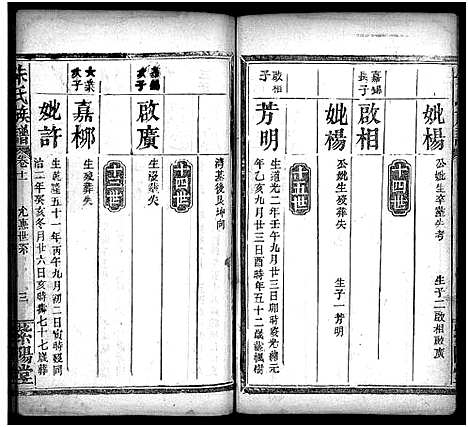 妣楊
公妣生卒葬失考
生子二啟相啟廣
十四世
嘉錫
長子
啟相
妣楊
公妣生歿葬失
生子一芳明
十五世
啟相
子
芳明
生道光二年九月廿三日卯時歿光緒元
年乙亥九月廿三日酉時年五十二歲葬楓樹
灣基後艮坤向
嘉錫
次子
啟廣
十四世
生歿葬失
次子
嘉柳
十三世
生歿葬失
妣許
生乾隆五十一年丙午九月初二日寅時歿同
治二年癸亥冬月廿六日亥時壽七十七歲葬
朱氏族譜
卷十一
世系
三
紫陽堂